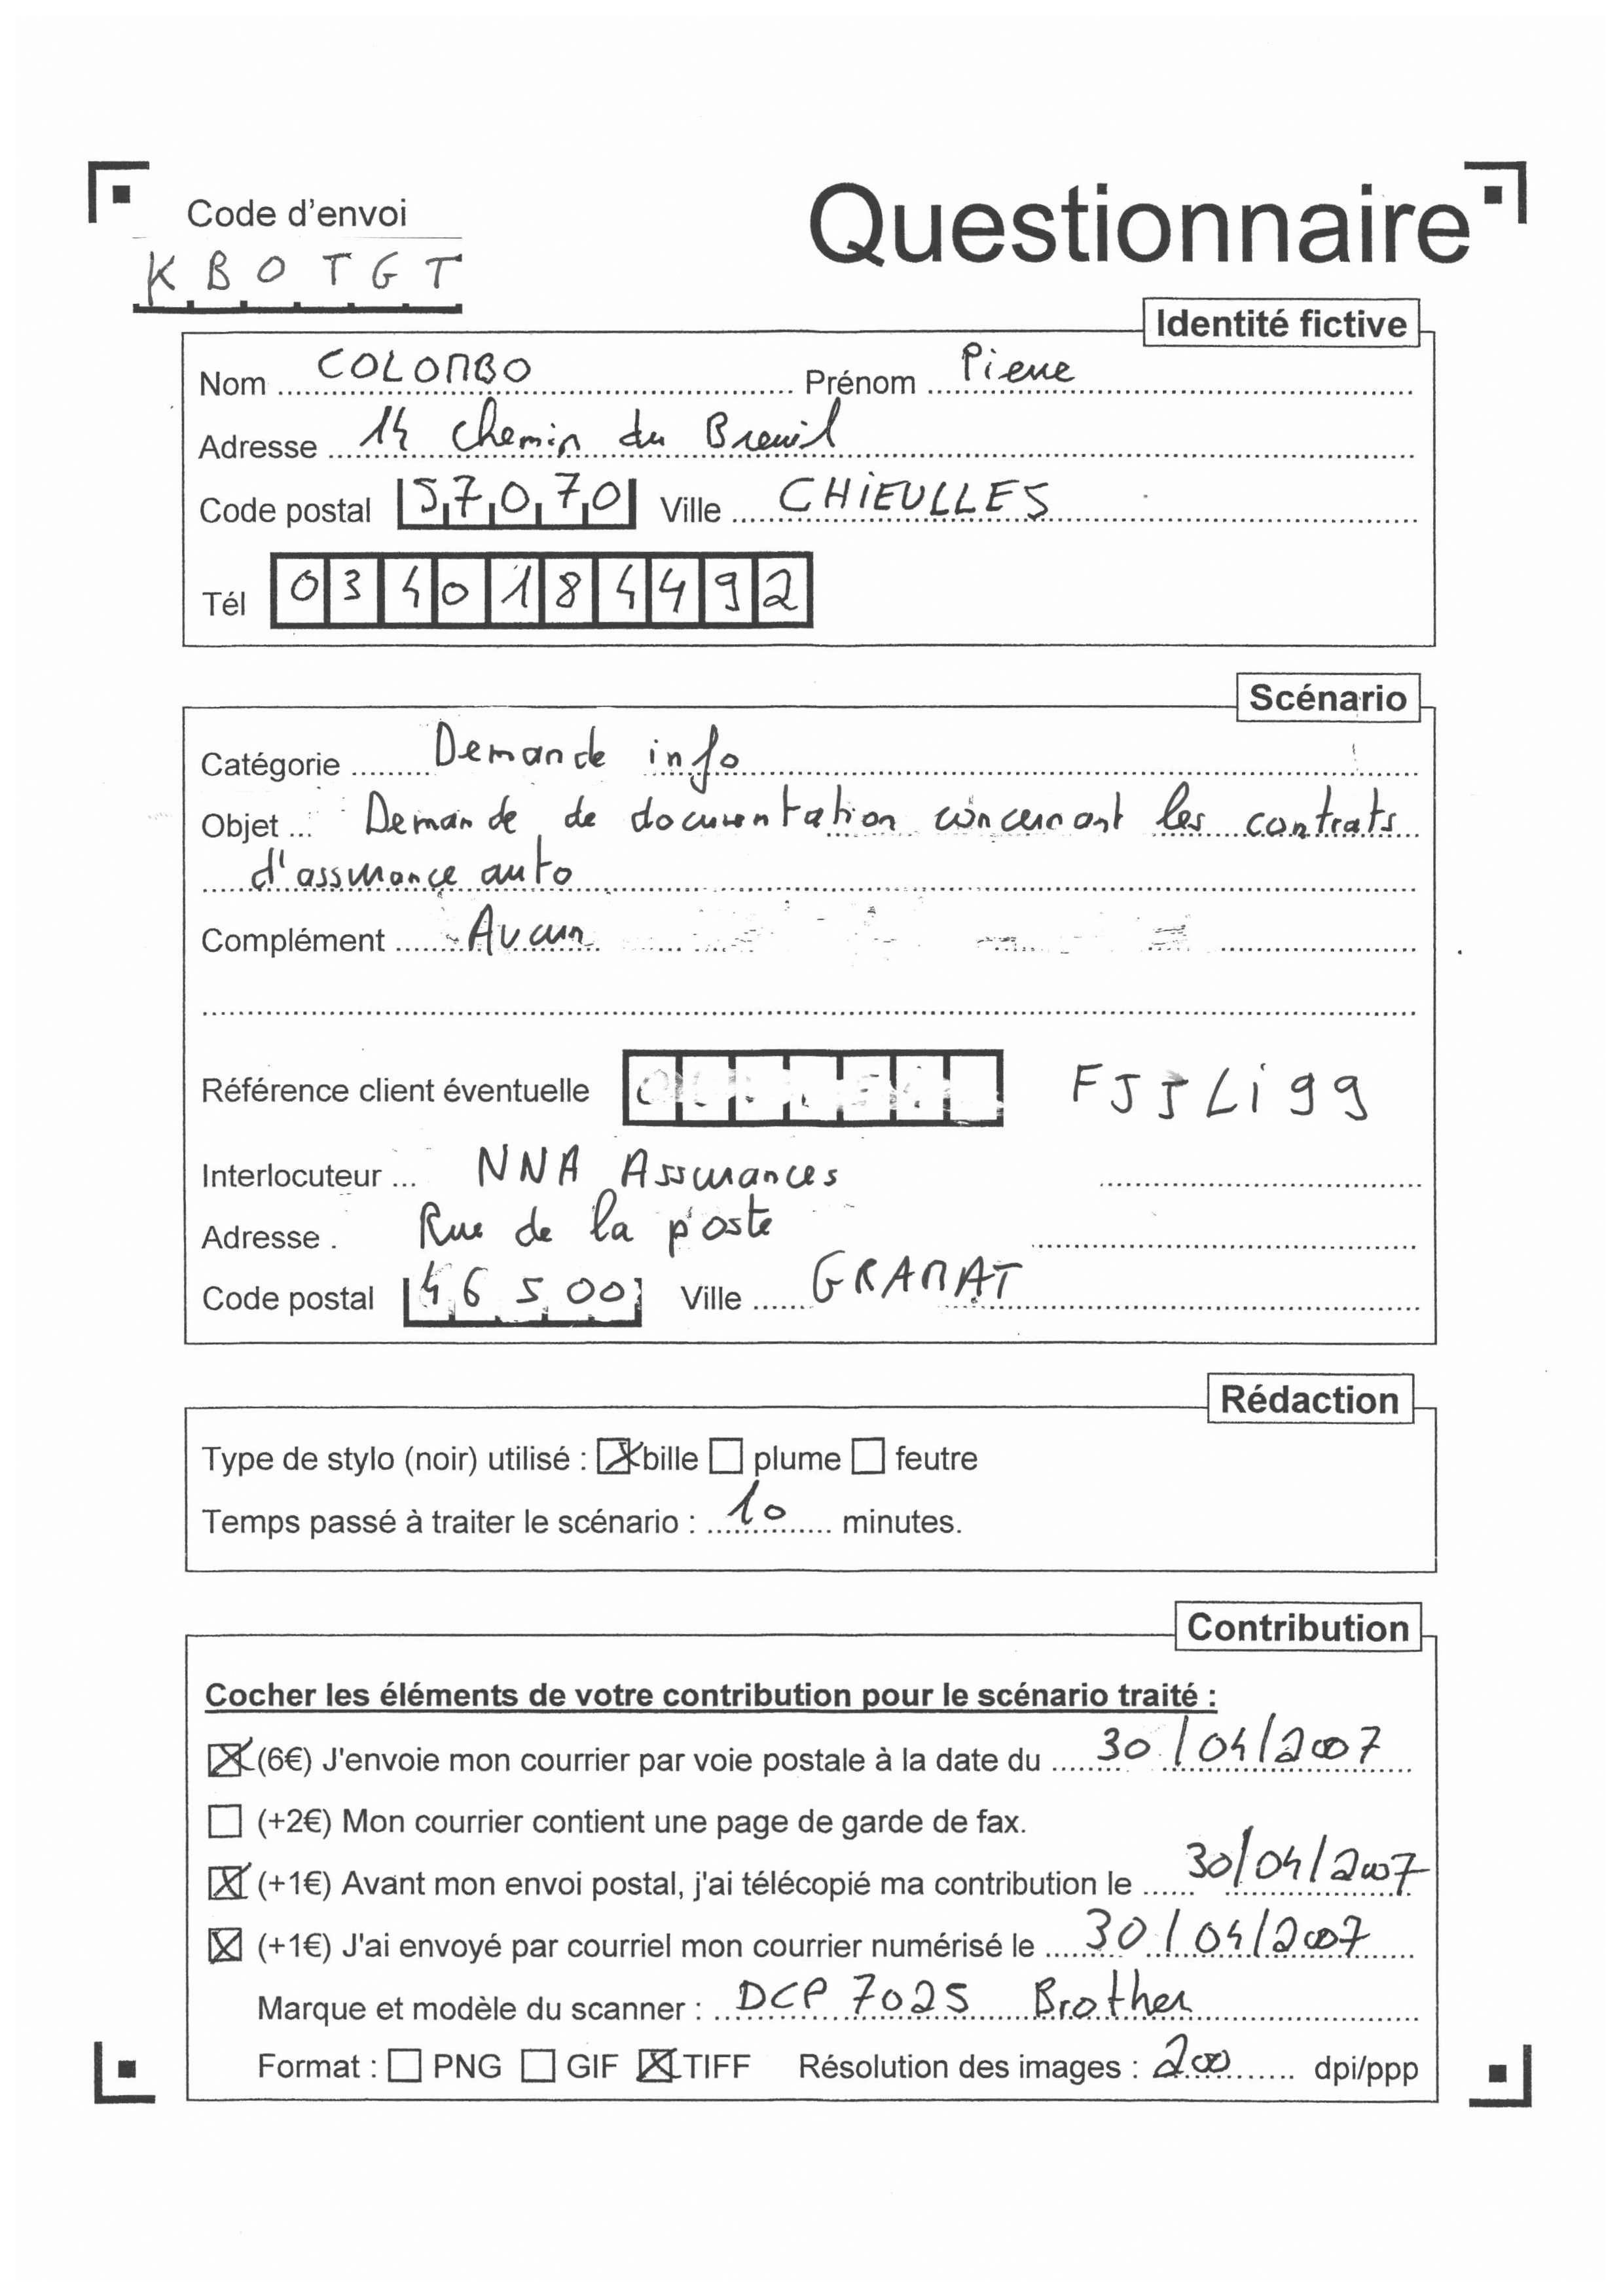 Code d'envoi
Questionnaire
K B O T G T
Identité fictive
Nom COLOMBO Prénom Pierre
Adresse 14 chemin du Breuil
Code postal 57070 Ville CHIEULLES
Tél 0340184492
Scénario
Catégorie Demande info
Objet Demande de documentation concernant les contrats
d'assurance auto
Complément Aucun
Référence client éventuelle FJJLi99
Interlocuteur NNA Assurances
Adresse Rue de la poste
Code postal 46500 Ville GRAMAT
Rédaction
Type de stylo (noir) utilisé : bille plume feutre
Temps passé à traiter le scénario : 10 minutes.
Contribution
Cocher les éléments de votre contribution pour le scénario traité :
(6€) J'envoie mon courrier par voie postale à la date du 30/04/2007
(+2€) Mon courrier contient une page de garde de fax.
(+1€) Avant mon envoi postal, j'ai télécopié ma contribution le 30/04/2007
(+1€) J'ai envoyé par courriel mon courrier numérisé le 30/04/2007
Marque et modèle du scanner : DCP 7025 Brother
Format : PNG GIF TIFF Résolution des images : 200 dpi/ppp